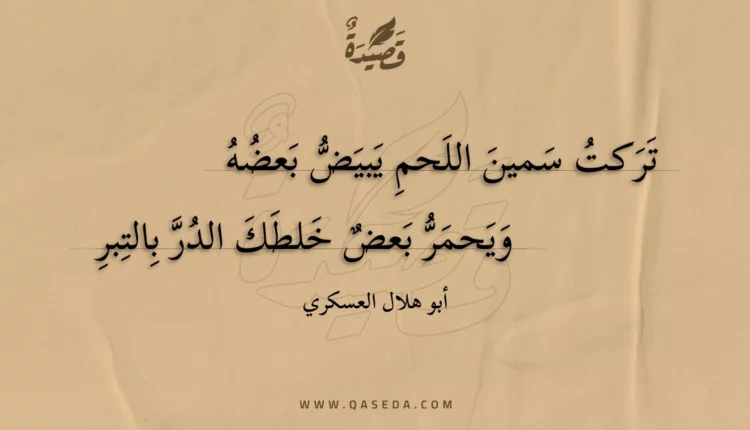 قَصِيْدَةٌ
تَرَكتُ سَمينَ اللَحمِ يَبيَضُّ بَعضُهُ
وَيَحمَرُّ بَعضٌ خَلطَكَ الدُرَّ بِالتِبرِ
أبو هلال العسكري
WWW.QASEDA.COM